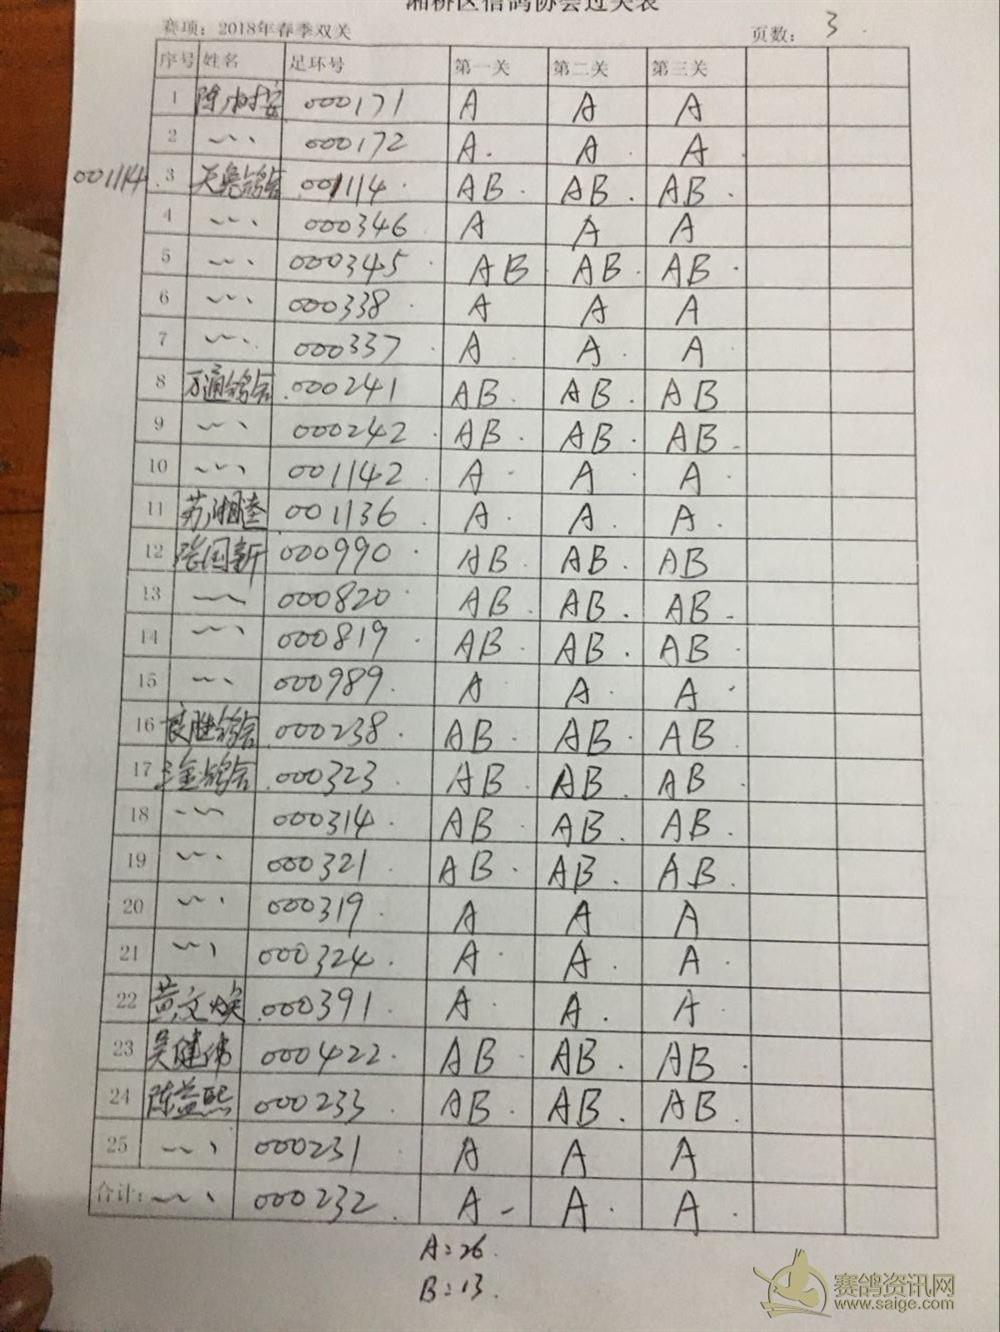 湘桥区信鸽协会过关表
赛项：2018年春季双关 页数： 3
序号 姓名 足环号 第一关 第二关 第三关
1 陈树安 000171 A A A
2 〃 000172 A. A A
001114. 3 鸽舍 001114. AB. AB. AB.
4 〃 000346 A A A
5 〃 000345. AB AB. AB.
6 〃 000338 A A A
7 〃 000337. A A. A
8 万通鸽舍 000241 AB. AB. AB
9 〃 000242. AB. AB. AB.
10 〃 001142. A. A. A
11 苏湘 001136 A. A. A.
12 张国新 000990. AB. AB. AB
13 〃 000820. AB. AB. AB.
14 〃 000819. AB. AB. AB.
15 〃 000989. A A. A.
16 良胜鸽舍 000238. AB. AB. AB
17 鸽舍 000323 AB. AB. AB.
18 〃 000314. AB. AB. AB.
19 〃 000321 AB. AB. AB.
20 〃 000319. A A A
21 〃 000324. A. A. A.
22 黄文焕 000391. A. A. A
23 吴健伟 000422. AB. AB. AB.
24 陈益熙 000233. AB. AB. AB.
25 〃 000231 A A A
合计： 〃 000232. A- A. A.
A=26.
B=13.
赛鸽资讯网
www.saige.com